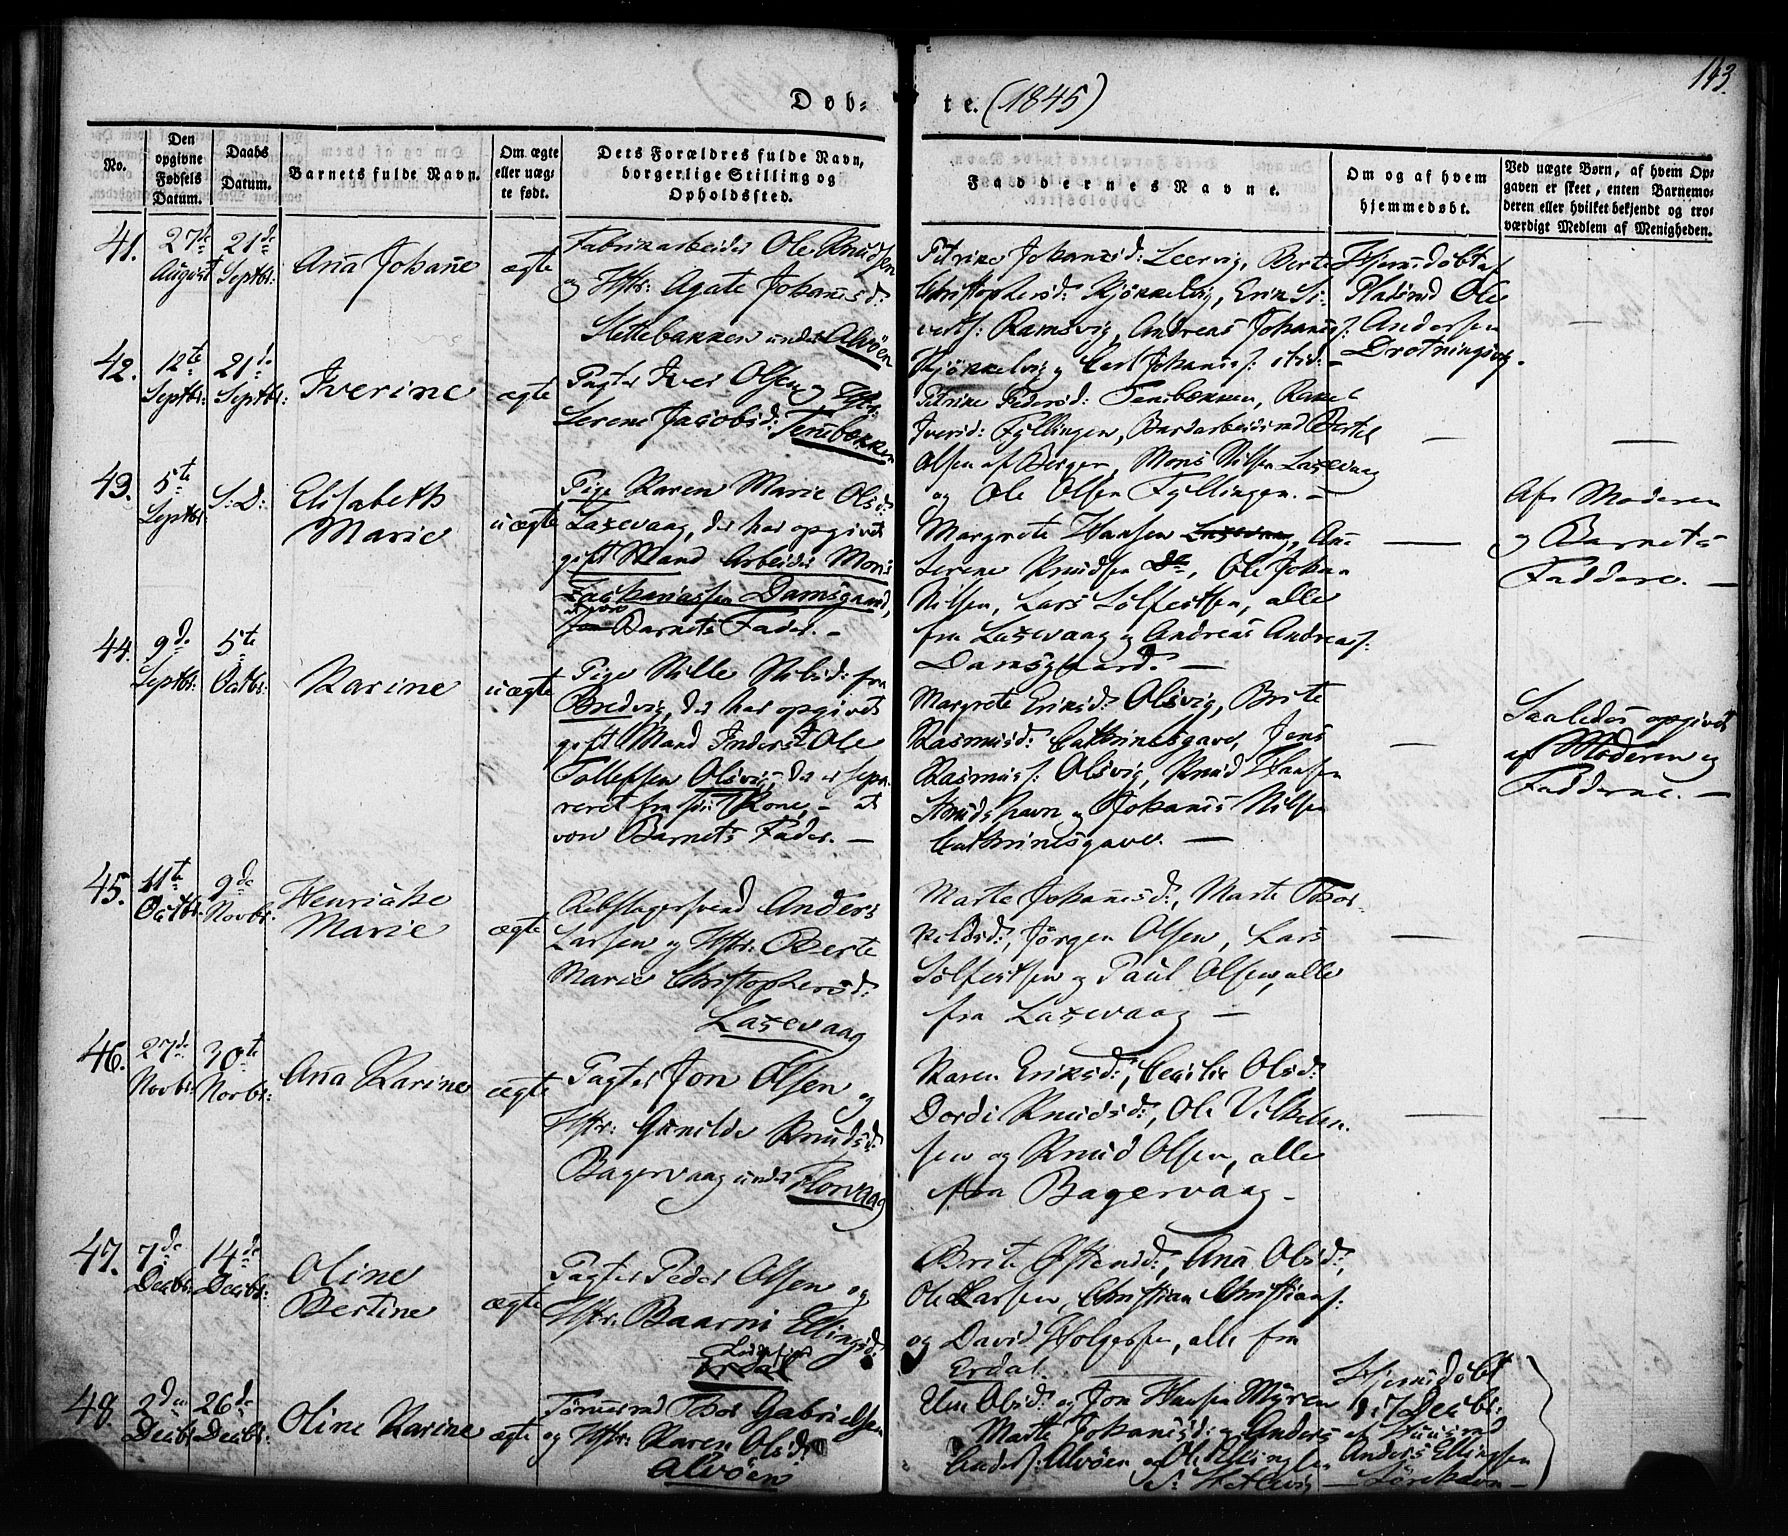 143.
Døb-te. (1845)
No.
Den opgivne Fødsels Datum.
Daabs Datum.
Barnets fulde Navn.
Om ægte eller uægte født.
Dets Forældres fulde Navn, borgerlige Stilling og Opholdssted.
Faddernes Navne.
Om og af hvem hjemmedøbt.
Ved uægte Børn, af hvem Opgaven er skeet, enten Barnemoderen eller hvilket bekjendt og troværdigt Medlem af Menigheden.
41.
27de August
21de Septbr:
Aña Johañe
ægte
Fabrikarbeider Ole Knudsen
og Hstr: Agate Johañsd:
Slettebakken under Alvøen
Petrine Johañesd: Leervig, Berte
Christophersd: Kjøkkelvig, Erik Si-
verts: Ramsvig, Andreas Johañes:
Kjøkkelvig og Carl Johañs: ibid: -
Hjemdøbt af
Pladsmd Ole
Andersen
Drotningsvig.
42.
12te Septbr:
21de Septbr:
Iverine
ægte
Pagter Iver Olsen og Hstr:
Serene Jacobsd: Tenebækken
Petrine Pedersd: Tenebækken, Rakel
Iversd: Fyllingen, Bordarbeidsmd Bertel
Olsen af Bergen, Mons Nilsen Laxevaag
og Ole Olsen Fyllingen. -
43.
5te Septbr:
S: D:
Elisabeth
Marie
uægte
Pige Karen Marie Olsd:
Laxevaag, der har opgivet
gift Mand Arbeider Mons
Zachariassen Damsgaard,
at være
Barnets Fader. -
Margrete Hansen Laxevaag, Añe
Serene Knudsen Do, Ole Johan
Nilsen, Lars Solfestsen, alle
fra Laxevaag og Andreas Andreass:
Damsgaard. -
Afr Moderen
og Barnets
Faddere. -
44.
9de Septbr:
5te Octbr:
Karine
uægte
Pige Nille Nilsd: fra
Bredvig, der har opgivet
gift Mand Inderst Ole
Tollefsen Olsvig, der er sepa-
reret fra sin Kone, - at
være Barnets Fader. -
Margrete Eriksd: Olsvig, Brite
Rasmusd: Cathrinesgave, Jens
Rasmuss: Olsvig, Knud Hansen
Knudshavn og Johañes Nilsen
Cathrinesgave. -
Saaledes opgivet
af Moderen og
Fadderne. -
45.
11te Octbr:
9de Novbr:
Henrikke
Marie
ægte
Rebslagersvend Anders
Larsen og Hstr: Berte
Marie Christophersd:
Laxevaag
Marte Johañesd:, Marte Thor-
kildsd:, Jørgen Olsen, Lars
Solfestsen og Paul Olsen, alle
fra Laxevaag -
46.
27de Novbr:
30te Novbr:
Aña Karine
ægte
Pagter Jon Olsen og
Hstr: Guñilde Knudsd:
Bagervaag under Florvaag
Karen Eriksd:, Cecilie Olsd:
Dordi Knudsd:, Ole Vilhelm-
sen og Knud Olsen, alle
fra Bagervaag -
47.
7de Decbr:
14de Decbr:
Oline
Bertine
ægte
Pagter Peder Olsen og
Hstr: Baarni Ellingsd:
Erdal
Brite Ostensd:, Aña Olsd:,
Ole Larsen, Christian Christians:
og David Holgersen, alle fra
Erdal. -
48.
2den Decbr:
26de Decbr:
Oline Karine
ægte
Tømmermd Thor Gabrielsen
og Hstr: Karen Olsdr:
Alvøen
Elen Olsd: og Jon Hansen Myren
Marte Johañesd: og Anders
Alvøen og Ole Elling
Hetlevig
Hjemdøbt
d: 17 Decbr:
af Huusmd
Anders Ellingsen